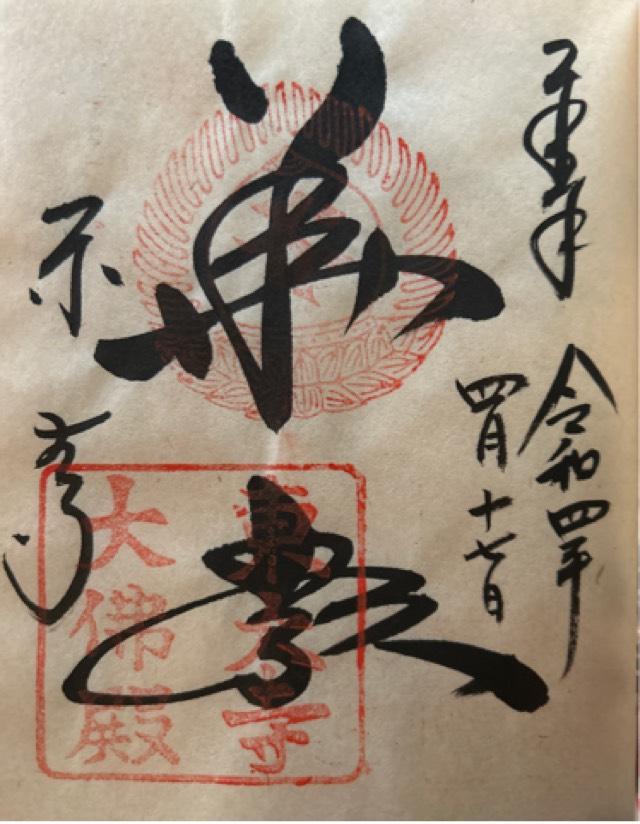 奉拝
令和四年
四月十七日
華嚴
東大寺
東大寺
大佛殿